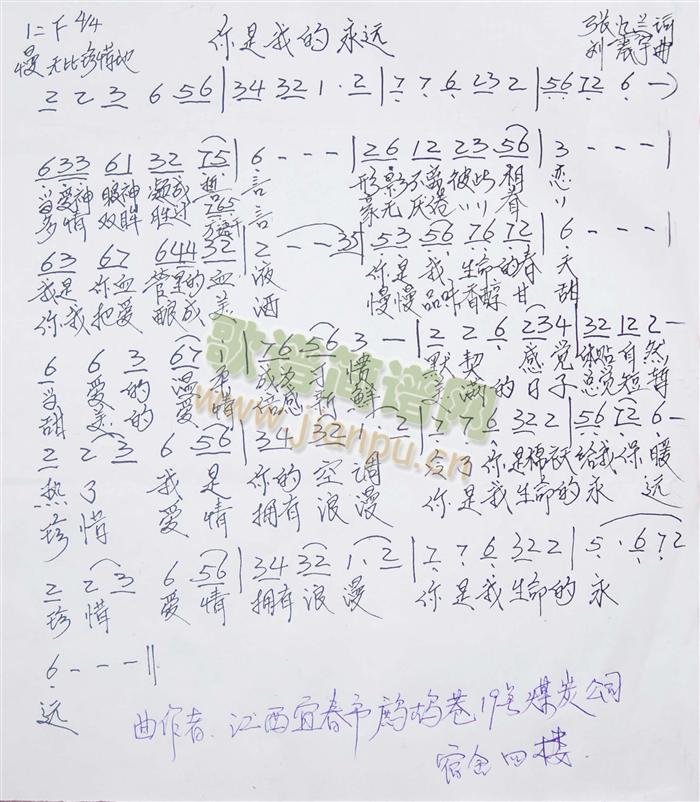 你是我的永远
1=F 4/4
慢 无比珍惜地
词
刘 曲
2 2 3 6 56 | 34 32 1 · 2 | 7 7 6 23 2 | 56 72 6 — )
633 61 32 75 | 6 - - - | 26 12 23 56 | 3 - - - |
当爱神 眼神 凝成 言 形影不离彼此相 恋
多情 双眸 胜过 765 言 看
63 67 644 32 | 2 - - - 35 | 53 56 76 72 | 6 - - - |
我是 你血 管里的血 液 你是我生命的春 天
你我把爱 酿成 美 酒 慢慢品味香醇甘 甜
6 6 3 67 | 76 56 3 — | 2 2 6 234 | 32 12 2 —
当 爱 的 温 情 成为习 惯 默 契 感觉 体贴自然
甜 美 的 爱 情 感 新鲜 满 的 日子 总觉短暂
2 2 3 6 56 | 34 32 1 · 2 | 7 7 6 32 2 | 56 72 6 —
热 了 我 是 你的 空调 冷了 你是棉袄给我保 暖
珍 惜 爱 情 拥有 浪 漫 你是我生命的永 远
2 2 3 6 56 | 34 32 1 · 2 | 7 7 6 32 2 | 5 · 6 7 2
珍 惜 爱 情 拥有 浪 漫 你是我生命的 永
6 - - - ||
远
歌谱简谱网
www.jianpu.cn
曲作者：江西宜春市鹧鸪巷19号煤炭公司
宿舍四楼